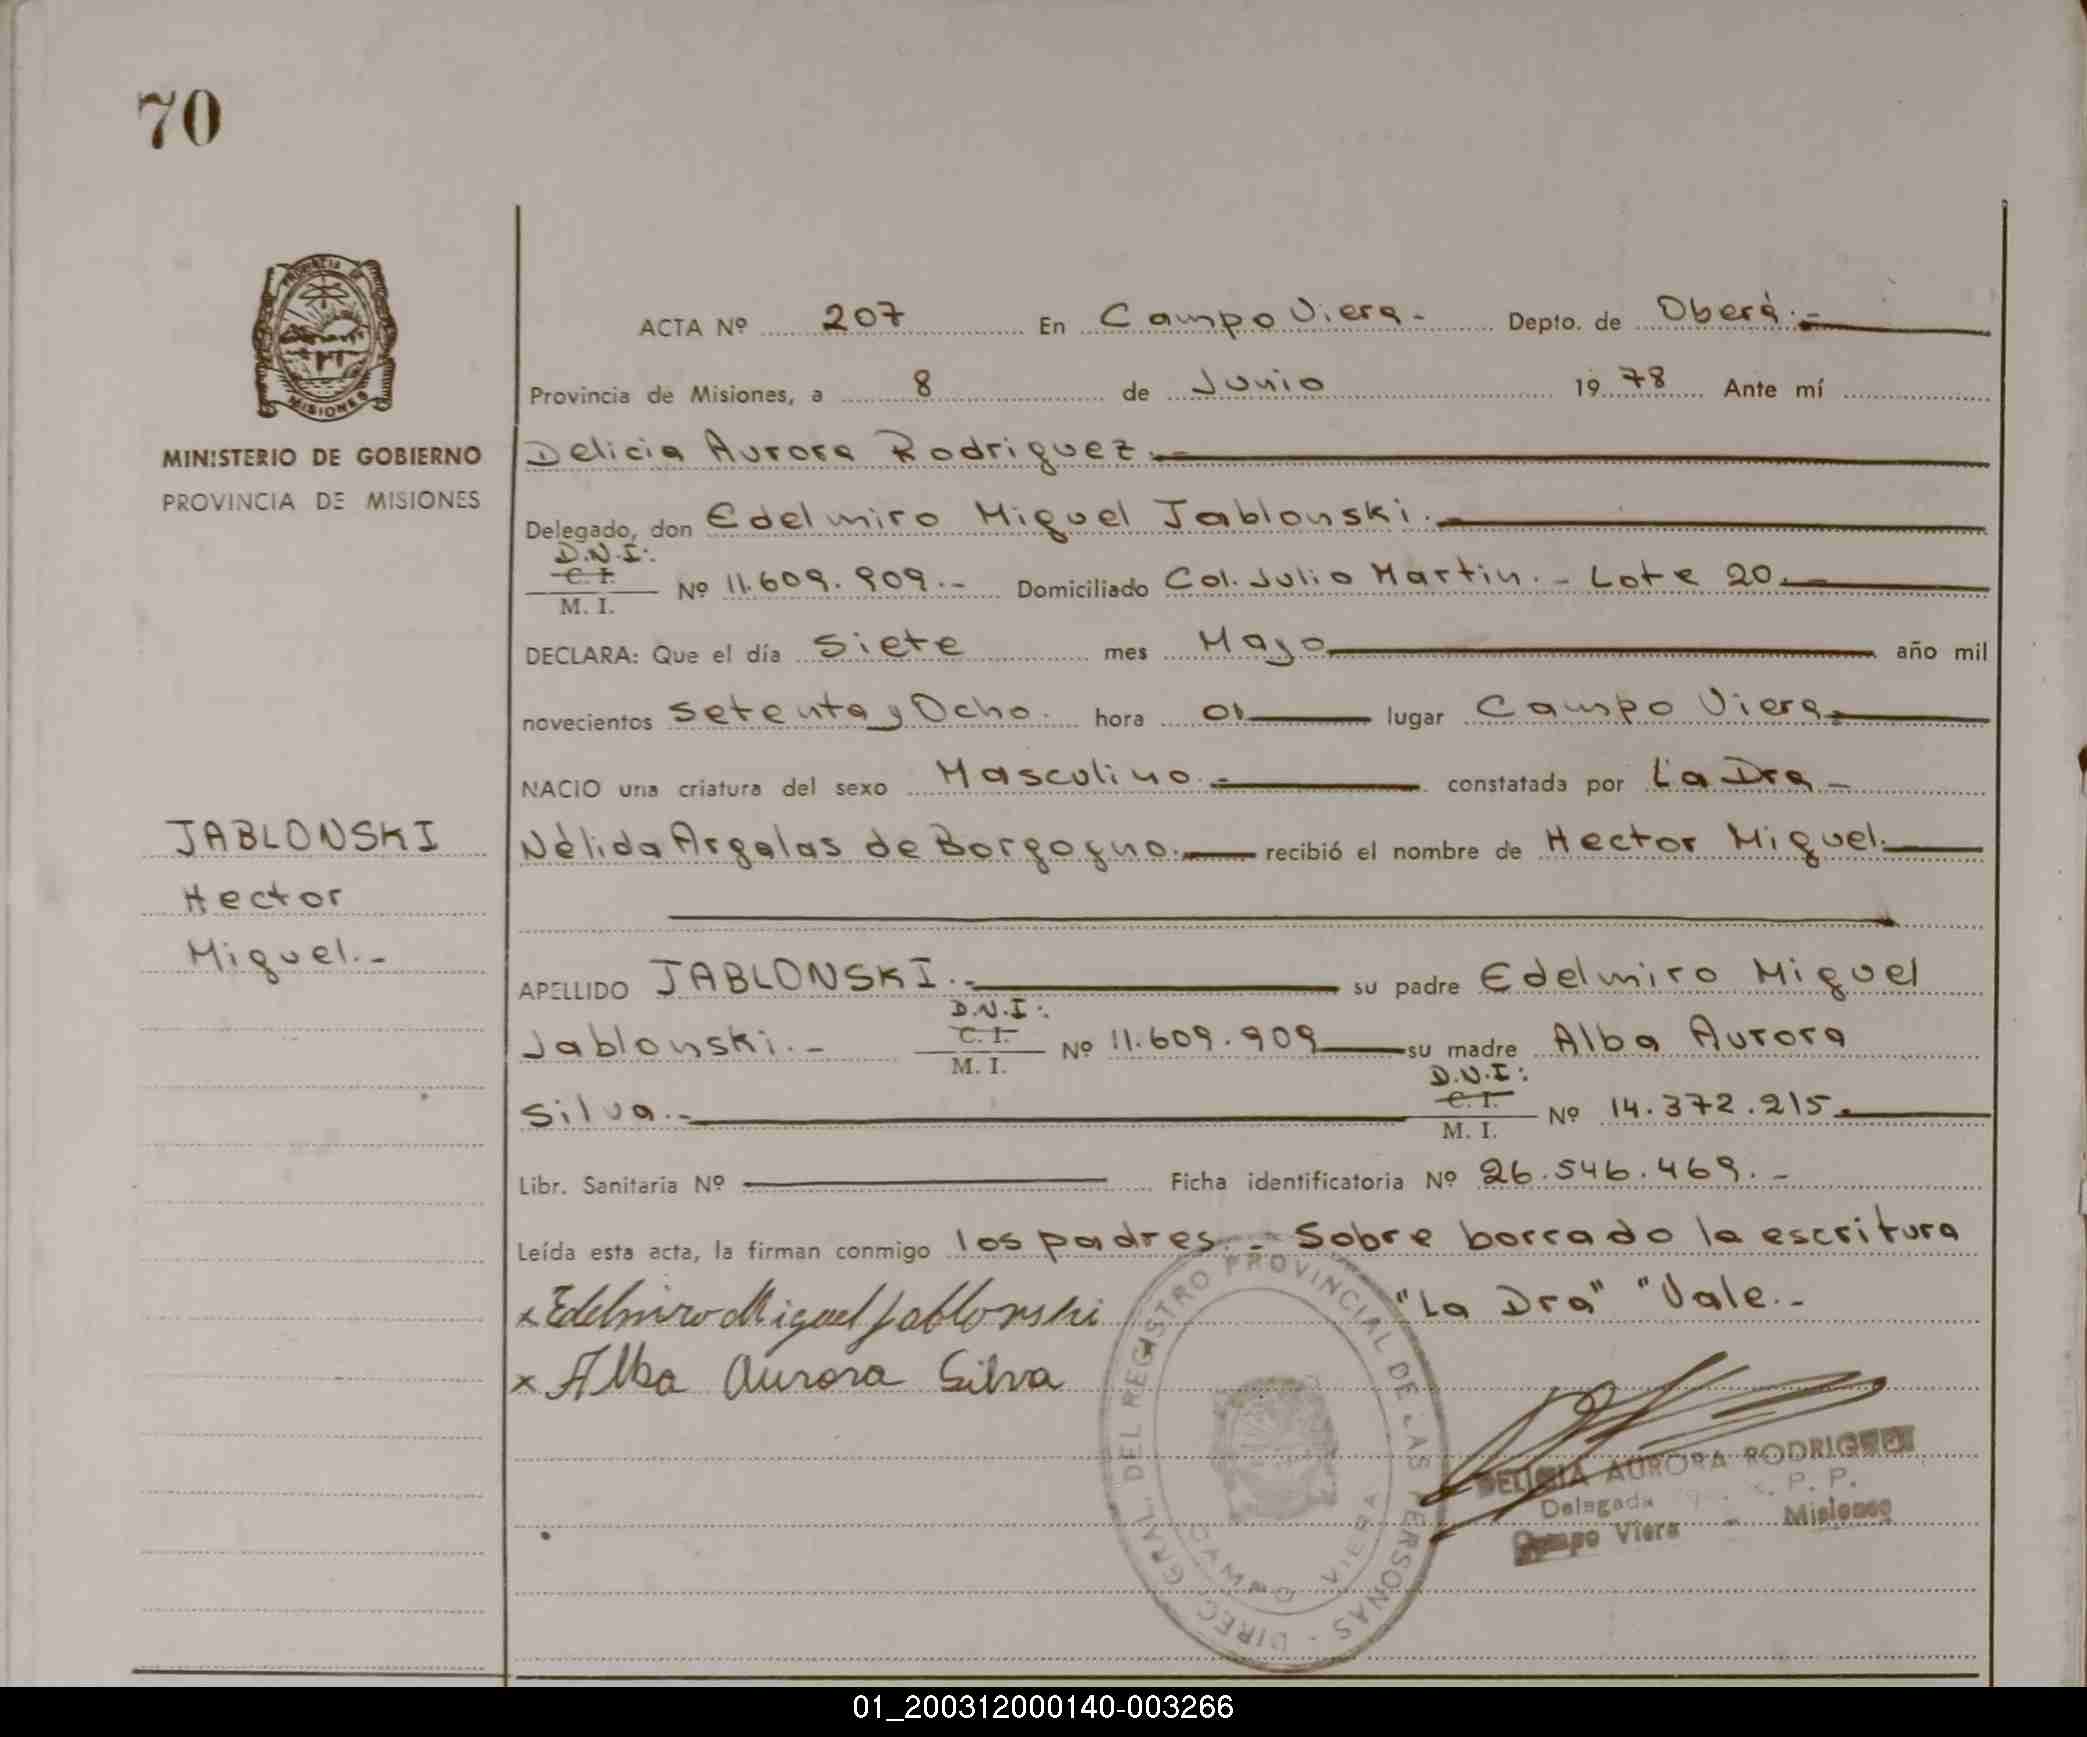 70
PROVINCIA DE
MISIONES
MINISTERIO DE GOBIERNO
PROVINCIA DE MISIONES
JABLONSKI
Hector
Miguel.-
ACTA Nº 207 En Campo Viera.- Depto. de Oberá.-
Provincia de Misiones, a 8 de Junio 19 78 Ante mí
Delicia Aurora Rodriguez.-
Delegado, don Edelmiro Miguel Jablonski.-
D.N.I:
C. I.
M. I.
Nº 11.609.909.- Domiciliado Col. Julio Martin.- Lote 20.-
DECLARA: Que el día Siete mes Mayo año mil
novecientos Setenta y Ocho. hora 01 lugar Campo Viera
NACIO una criatura del sexo Masculino.- constatada por La Dra-
Nélida Argalas de Borgogno.- recibió el nombre de Hector Miguel.
APELLIDO JABLONSKI.- su padre Edelmiro Miguel
D.N.I:
Jablonski.- C. I. Nº 11.609.909 su madre Alba Aurora
M. I.
D.N.I:
Silva.- C. I. Nº 14.372.215.
M. I.
Libr. Sanitaria Nº Ficha identificatoria Nº 26.546.469.-
Leída esta acta, la firman conmigo los padres.- Sobre borrado la escritura
x Edelmiro Miguel Jablonski "La Dra" "Vale.-
x Alba Aurora Silva
DIREC. GRAL. DEL REGISTRO PROVINCIAL DE LAS PERSONAS -
CAMPO VIERA
DELICIA AURORA RODRIGUEZ
Delegada P. P.
Campo Viera - Misiones
01_200312000140-003266